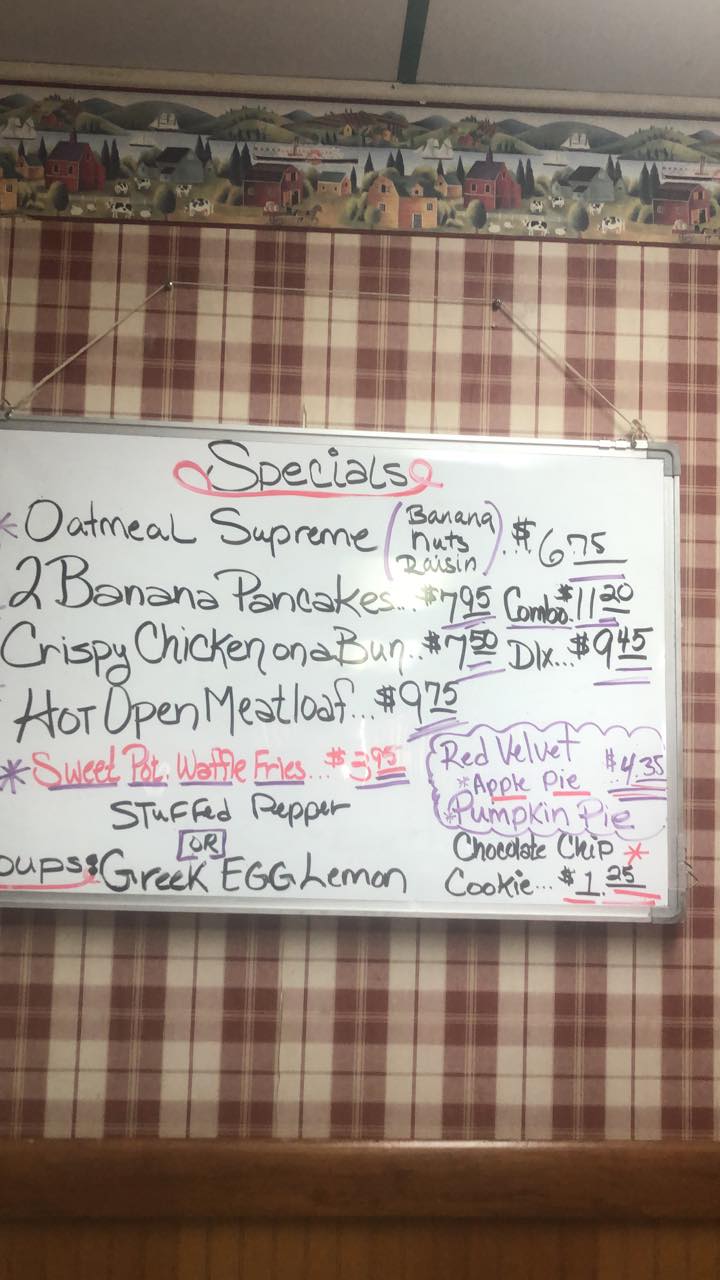 Specials
* Oatmeal Supreme (Banana Nuts Raisin) .. $6.75
2 Banana Pancakes... $7.95 Combo. $11.20
Crispy Chicken on a Bun.. $7.50 Dlx... $9.45
Hot Open Meatloaf... $9.75
* Sweet Pot. Waffle Fries... $3.95
Stuffed Pepper
OR
oups: Greek Egg Lemon
Red Velvet
*Apple Pie $4.35
*Pumpkin Pie
Chocolate Chip *
Cookie... $1.25